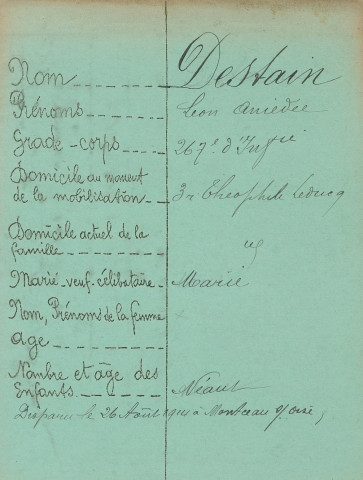 Nom Destain
Prénoms Léon Amédée
Grade-corps 267e d'Inftie
Domicile au moment
de la mobilisation 3 r Théophile Leducq
Domicile actuel de la
famille
Marié-veuf-célibataire Marié
Nom, Prénoms de la femme
age
Nombre et âge des
Enfants Néant
Disparu le 26 Août 1914 à Montceau s/ Oise